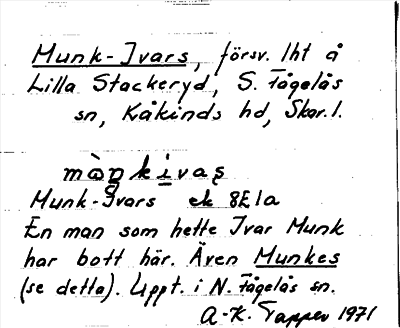 Munk-Ivars, försv. lht å
Lilla Stackeryd, S. Fågelås
sn, Kåkinds hd, Skar. l.
Munk-Ivars ek 8E1a
En man som hette Ivar Munk
har bott här. Även Munkes
(se detta). Uppt. i N. Fågelås sn.
A.-K. Tapper 1971